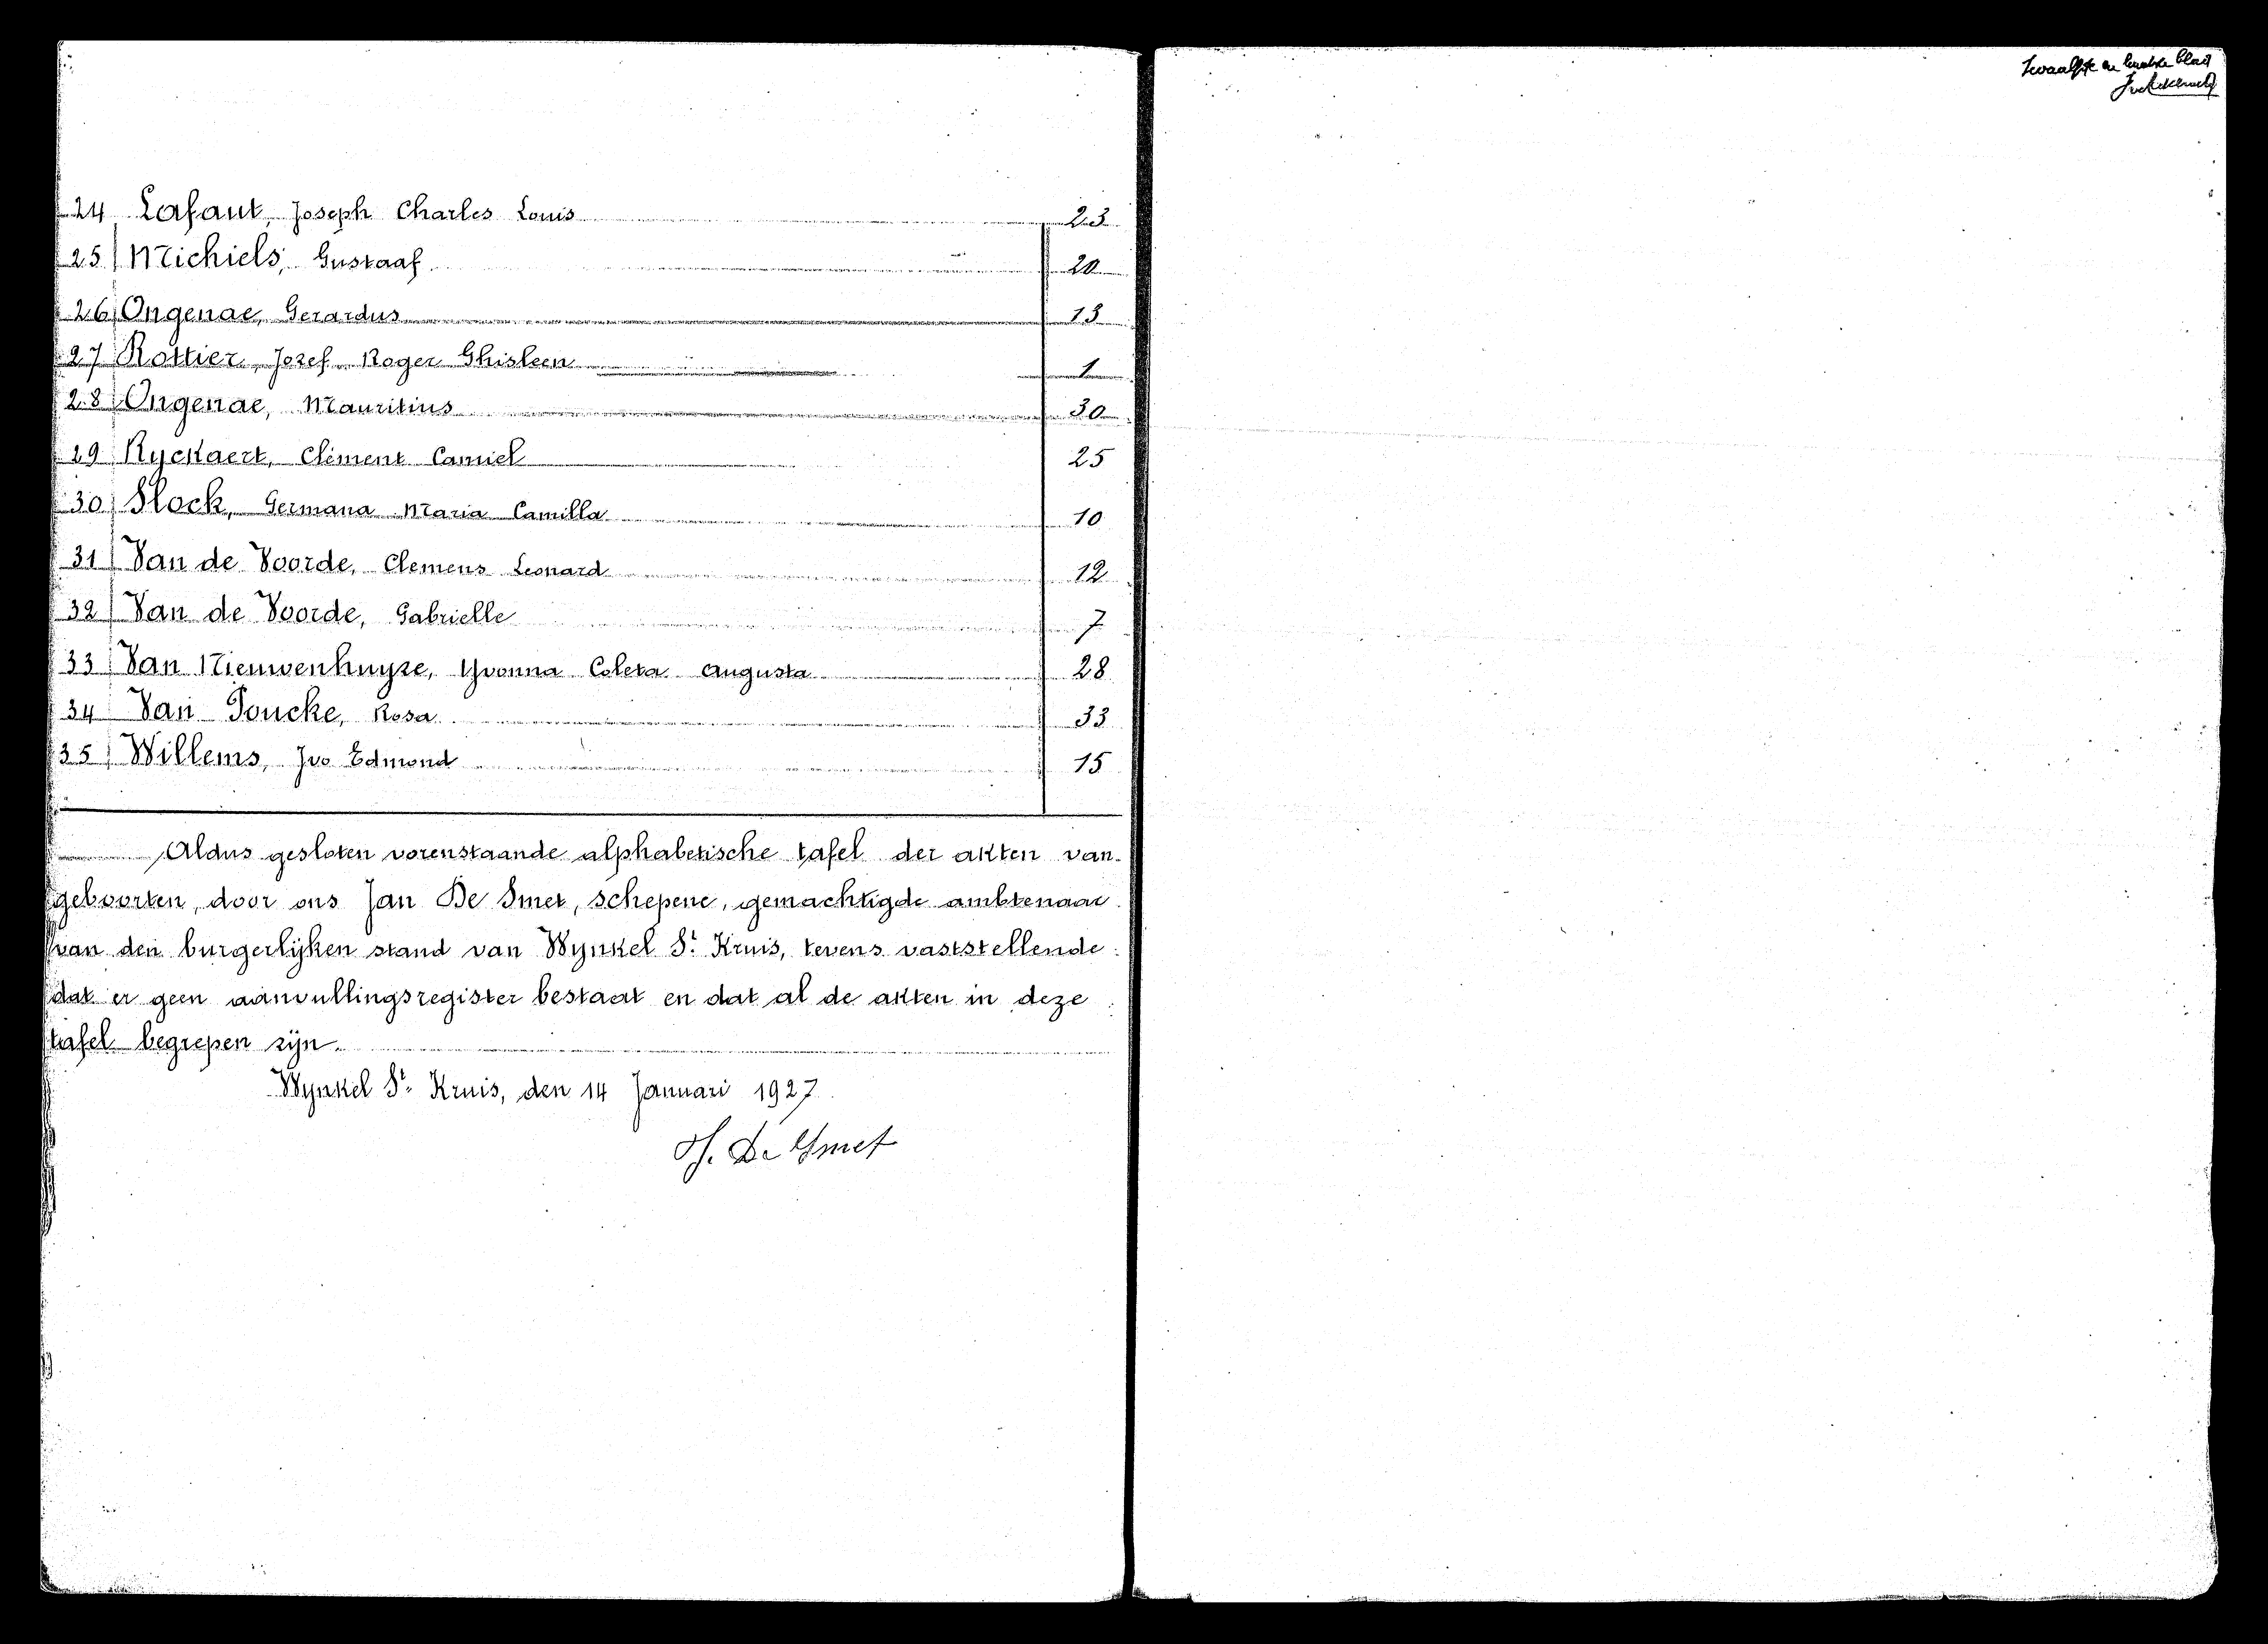 24 Lafaut, Joseph Charles Louis 23
25 Michiels, Gustaaf 20
26 Ongenae, Gerardus 13
27 Rottier, Jozef Roger Ghisleen 1
28 Ongenae, Mauritius 30
29 Ryckaert, Clément Camiel 25
30 Slock, Germana Maria Camilla 10
31 Van de Voorde, Clemens Leonard 12
32 Van de Voorde, Gabrielle 7
33 Van Nieuwenhuyse, Yvonna Coleta Augusta 28
34 Van Poucke, Rosa 33
35 Willems, Ivo Edmond 15
Aldus gesloten vorenstaande alphabetische tafel der akten van
geboorten, door ons Jan De Smet, schepene, gemachtigde ambtenaar
van den burgerlijken stand van Wynkel St Kruis, tevens vaststellende
dat er geen aanvullingsregister bestaat en dat al de akten in deze
tafel begrepen zijn.
Wynkel St Kruis, den 14 Januari 1927
De Smet
Twaalfste en laatste blad